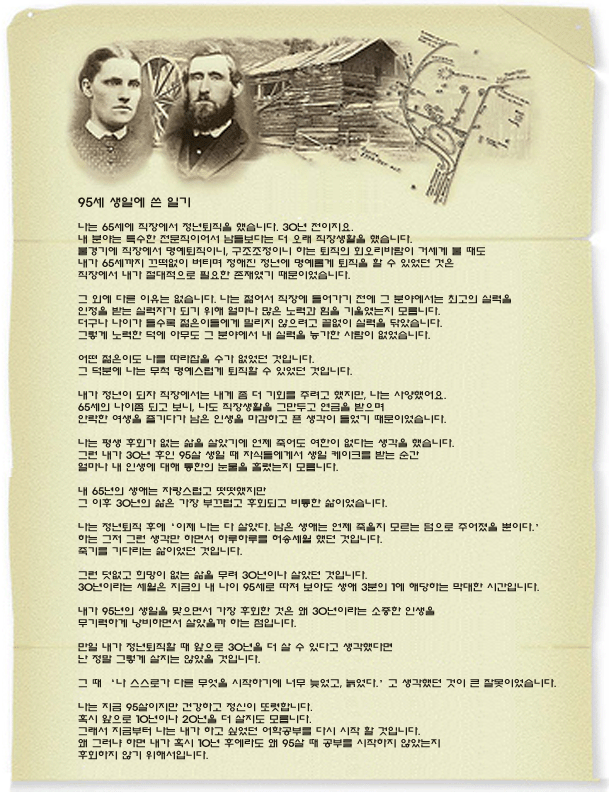 95세 생일에 쓴 일기
나는 65세에 직장에서 정년퇴직을 했습니다. 30년 전이지요.
내 분야는 특수한 전문직이어서 남들보다는 더 오래 직장생활을 했습니다.
불경기에 직장에서 명예퇴직이니, 구조조정이니 하는 퇴직의 회오리바람이 거세게 불 때도
내가 65세까지 끄떡없이 버티며 정해진 정년에 명예롭게 퇴직을 할 수 있었던 것은
직장에서 내가 절대적으로 필요한 존재였기 때문이었습니다.
그 외에 다른 이유는 없습니다. 나는 젊어서 직장에 들어가기 전에 그 분야에서는 최고의 실력을
인정을 받는 실력자가 되기 위해 얼마나 많은 노력과 힘을 기울였는지 모릅니다.
더구나 나이가 들수록 젊은이들에게 밀리지 않으려고 끝없이 실력을 닦았습니다.
그렇게 노력한 덕에 아무도 그 분야에서 내 실력을 능가한 사람이 없었습니다.
어떤 젊은이도 나를 따라잡을 수가 없었던 것입니다.
그 덕분에 나는 무척 명예스럽게 퇴직할 수 있었던 것입니다.
내가 정년이 되자 직장에서는 내게 좀 더 기회를 주려고 했지만, 나는 사양했어요.
65세의 나이쯤 되고 보니, 나도 직장생활을 그만두고 연금을 받으며
안락한 여생을 즐기다가 남은 인생을 마감하고 픈 생각이 들었기 때문이었습니다.
나는 평생 후회가 없는 삶을 살았기에 언제 죽어도 여한이 없다는 생각을 했습니다.
그런 내가 30년 후인 95살 생일 때 자식들에게서 생일 케이크를 받는 순간
얼마나 내 인생에 대해 통한의 눈물을 흘렸는지 모릅니다.
내 65년의 생애는 자랑스럽고 떳떳했지만
그 이후 30년의 삶은 가장 부끄럽고 후회되고 비통한 삶이었습니다.
나는 정년퇴직 후에 '이제 나는 다 살았다. 남은 생애는 언제 죽을지 모르는 덤으로 주어졌을 뿐이다.'
하는 그저 그런 생각만 하면서 하루하루를 허송세월 했던 것입니다.
죽기를 기다리는 삶이었던 것입니다.
그런 덧없고 희망이 없는 삶을 무려 30년이나 살았던 것입니다.
30년이라는 세월은 지금의 내 나이 95세로 따져 보아도 생애 3분의 1에 해당하는 막대한 시간입니다.
내가 95년의 생일을 맞으면서 가장 후회한 것은 왜 30년이라는 소중한 인생을
무기력하게 낭비하면서 살았을까 하는 점입니다.
만일 내가 정년퇴직할 때 앞으로 30년을 더 살 수 있다고 생각했다면
난 정말 그렇게 살지는 않았을 것입니다.
그 때 '나 스스로가 다른 무엇을 시작하기에 너무 늦었고, 늙었다.' 고 생각했던 것이 큰 잘못이었습니다.
나는 지금 95살이지만 건강하고 정신이 또렷합니다.
혹시 앞으로 10년이나 20년을 더 살지도 모릅니다.
그래서 지금부터 나는 내가 하고 싶었던 어학공부를 다시 시작 할 것입니다.
왜 그러냐 하면 내가 혹시 10년 후에라도 왜 95살 때 공부를 시작하지 않았는지
후회하지 않기 위해서입니다.